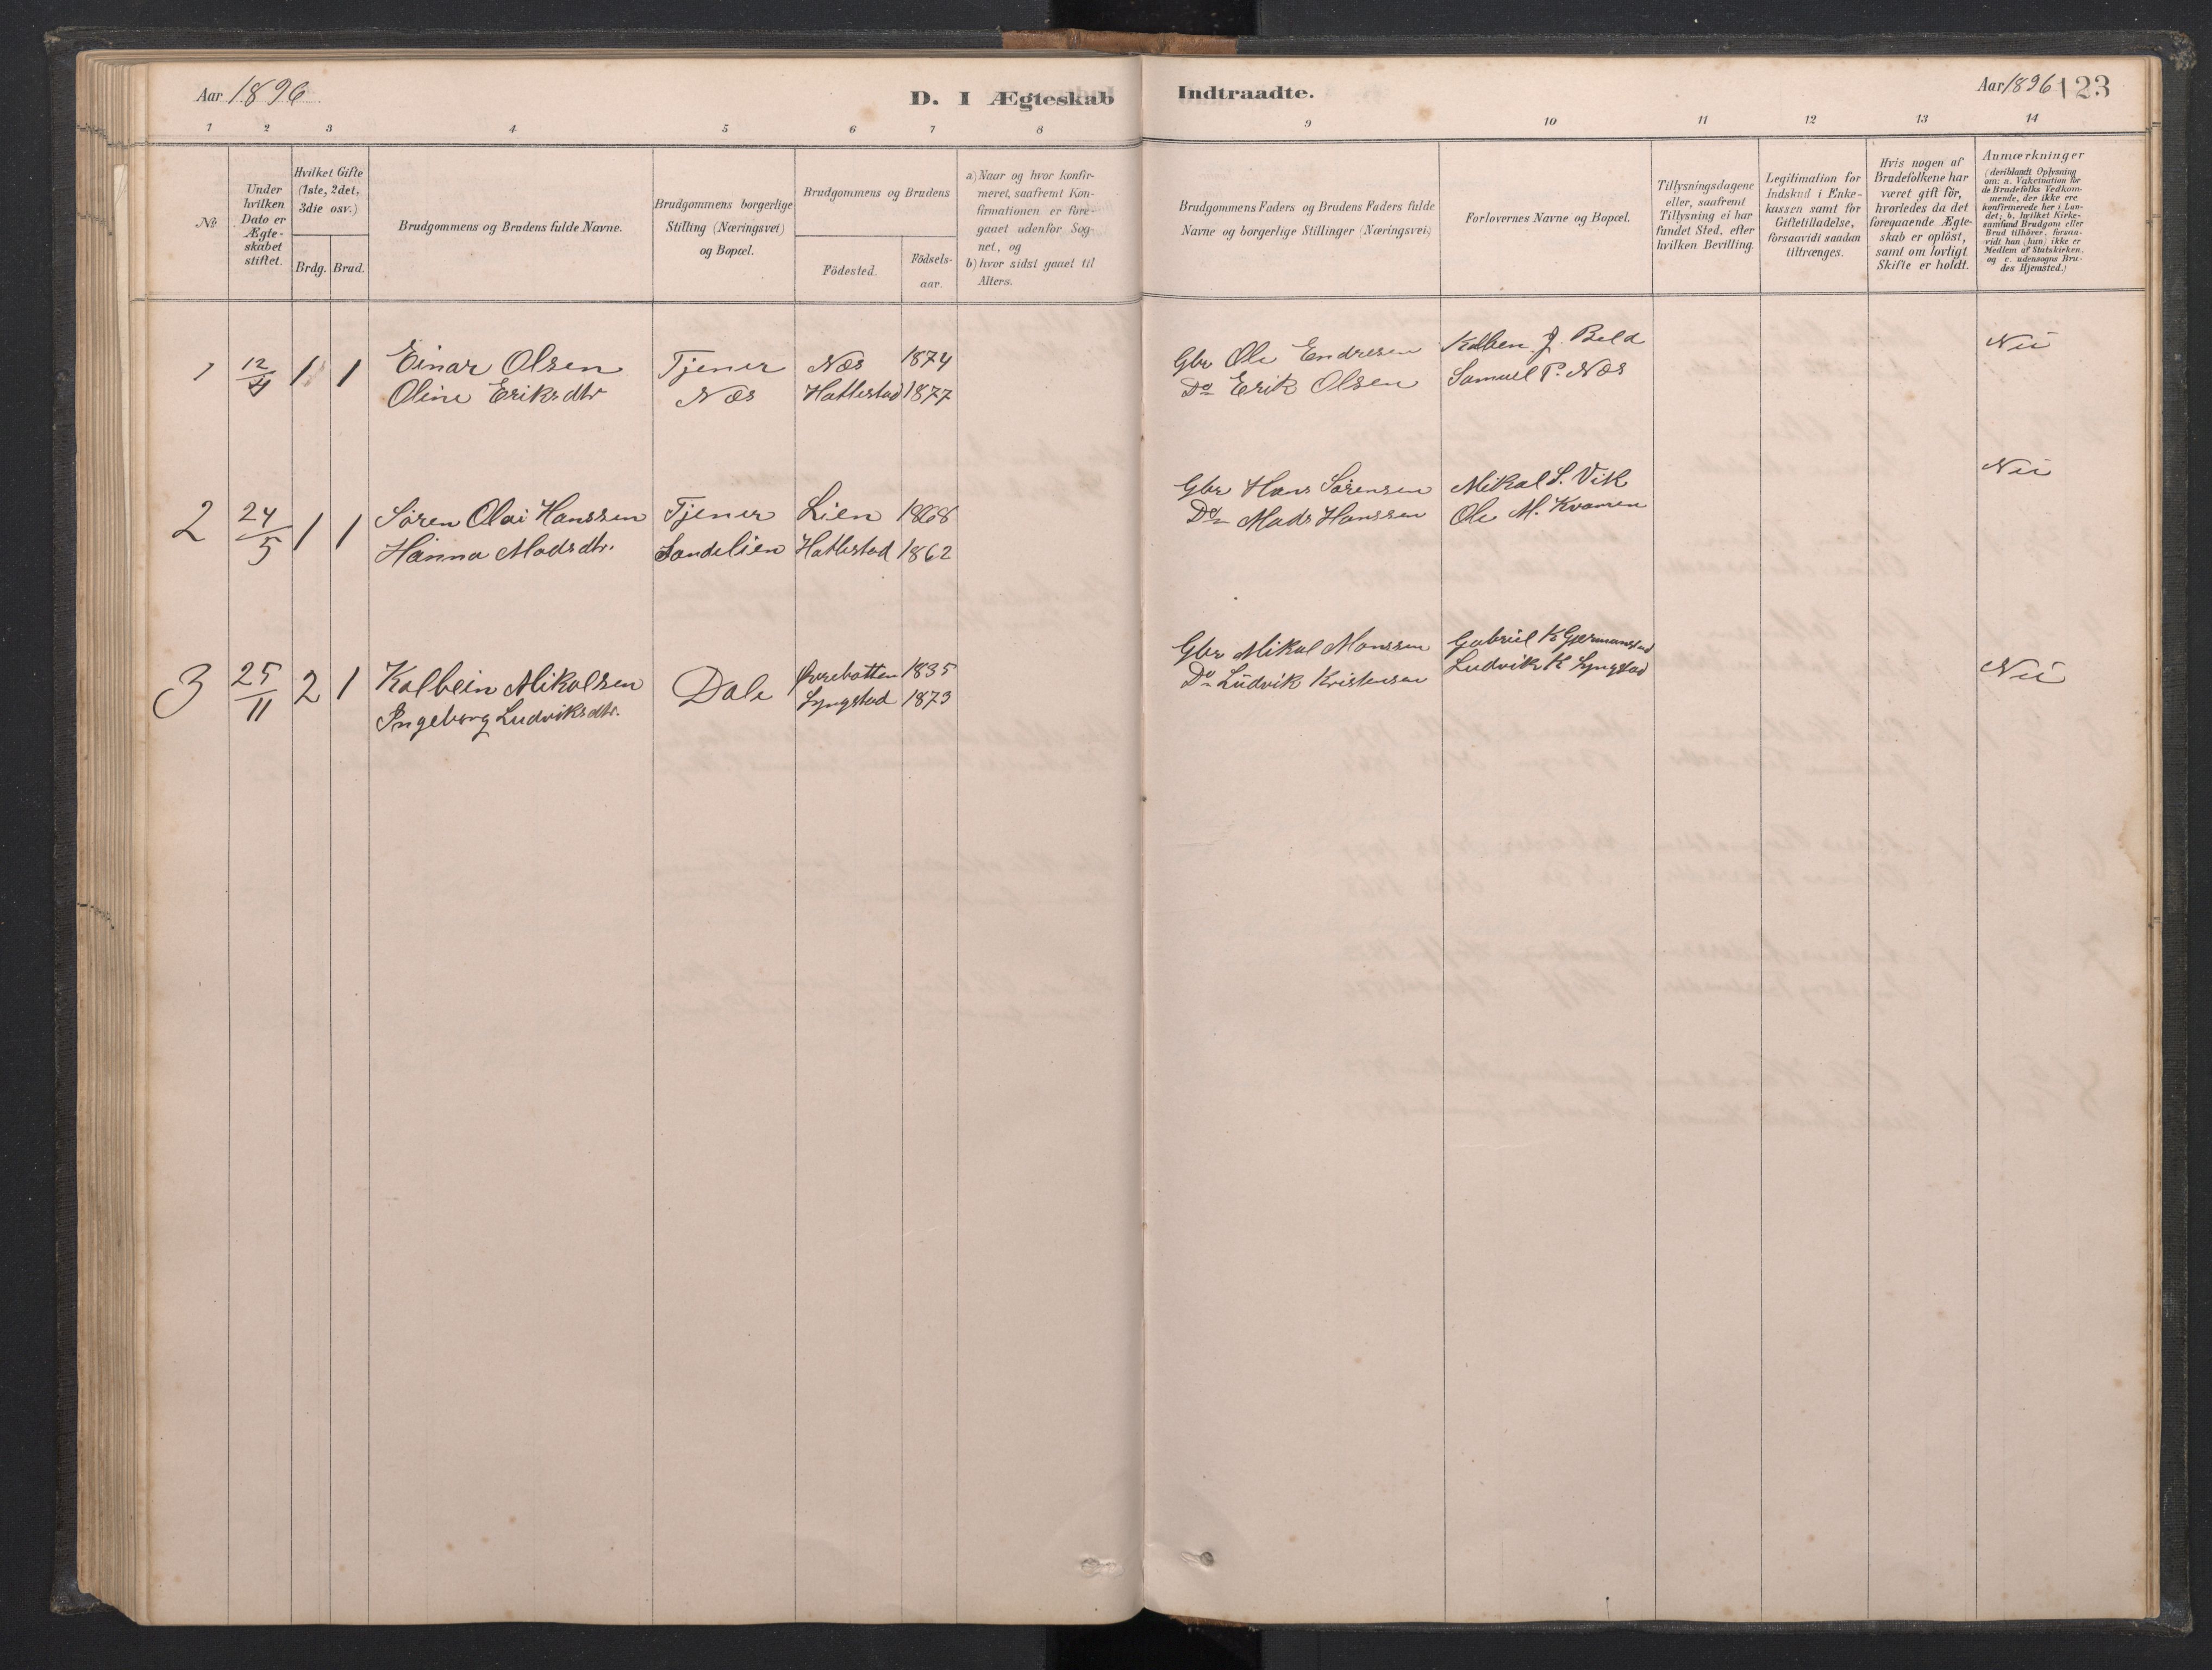 Aar 1896
D. I Ægteskab Indtraadte.
Aar 1896 123
1 2 3 4 5 6 7 8 9 10 11 12 13 14
№
Under hvilken Dato er Ægte-
skabet stiftet.
Hvilket Gifte
(1ste, 2det,
3die osv.)
Brdg. Brud.
Brudgommens og Brudens fulde Navne.
Brudgommens borgerlige
Stilling (Næringsvei)
og Bopæl.
Brudgommens og Brudens
Födested.
Födsels-
aar.
a) Naar og hvor konfir-
meret, saafremt Kon-
firmationen er fore-
gaaet udenfor Sog-
net, og
b) hvor sidst gaaet til
Alters.
Brudgommens Faders og Brudens Faders fulde
Navne og borgerlige Stillinger (Næringsvei)
Forlovernes Navne og Bopæl.
Tillysningsdagene
eller, saafremt
Tillysning ei har
fundet Sted, efter
hvilken Bevilling.
Legitimation for
Indskud i Enke-
kassen samt for
Giftetilladelse,
forsaavidt saadan
tiltrænges.
Hvis nogen af
Brudefolkene har
været gift för,
hvorledes da det
foregaaende Ægte-
skab er oplöst,
samt om lovligt
Skifte er holdt.
Anmærkninger
(deriblandt Oplysning
om: a. Vakcination for
de Brudefolks Vedkom-
mende, der ikke ere
konfirmerede her i Lan-
det; b. hvilket Kirke-
samfund Brudgom eller
Brud tilhörer, forsaa-
vidt han (hun) ikke er
Medlem af Statskirken,
og c. udensogns Bru-
des Hjemsted.)
1 12/4 1 1 Einar Olsen Tjener Næs 1874 Gbr Ole Endresen Kolben J. Beld Nei
Oline Eriksdtr Næs Hatlestad 1877 Do Erik Olsen Samuel P. Næs
2 24/5 1 1 Sören Olai Hanssen Tjener Lien 1868 Gbr Hans Sörensen Mikal S. Vik Nei
Hanna Madsdtr. Sandelien Hatlestad 1862 Do Mads Hanssen Ole M. Kvamen
3 25/11 2 1 Kolbein Mikalsen Dale Övrebotten 1835 Gbr Mikal Monssen Gabriel K Gjermanstad Nei
Ingeborg Ludviksdtr. Lyngstad 1873 Do Ludvik Kristensen Ludvik K Lyngstad